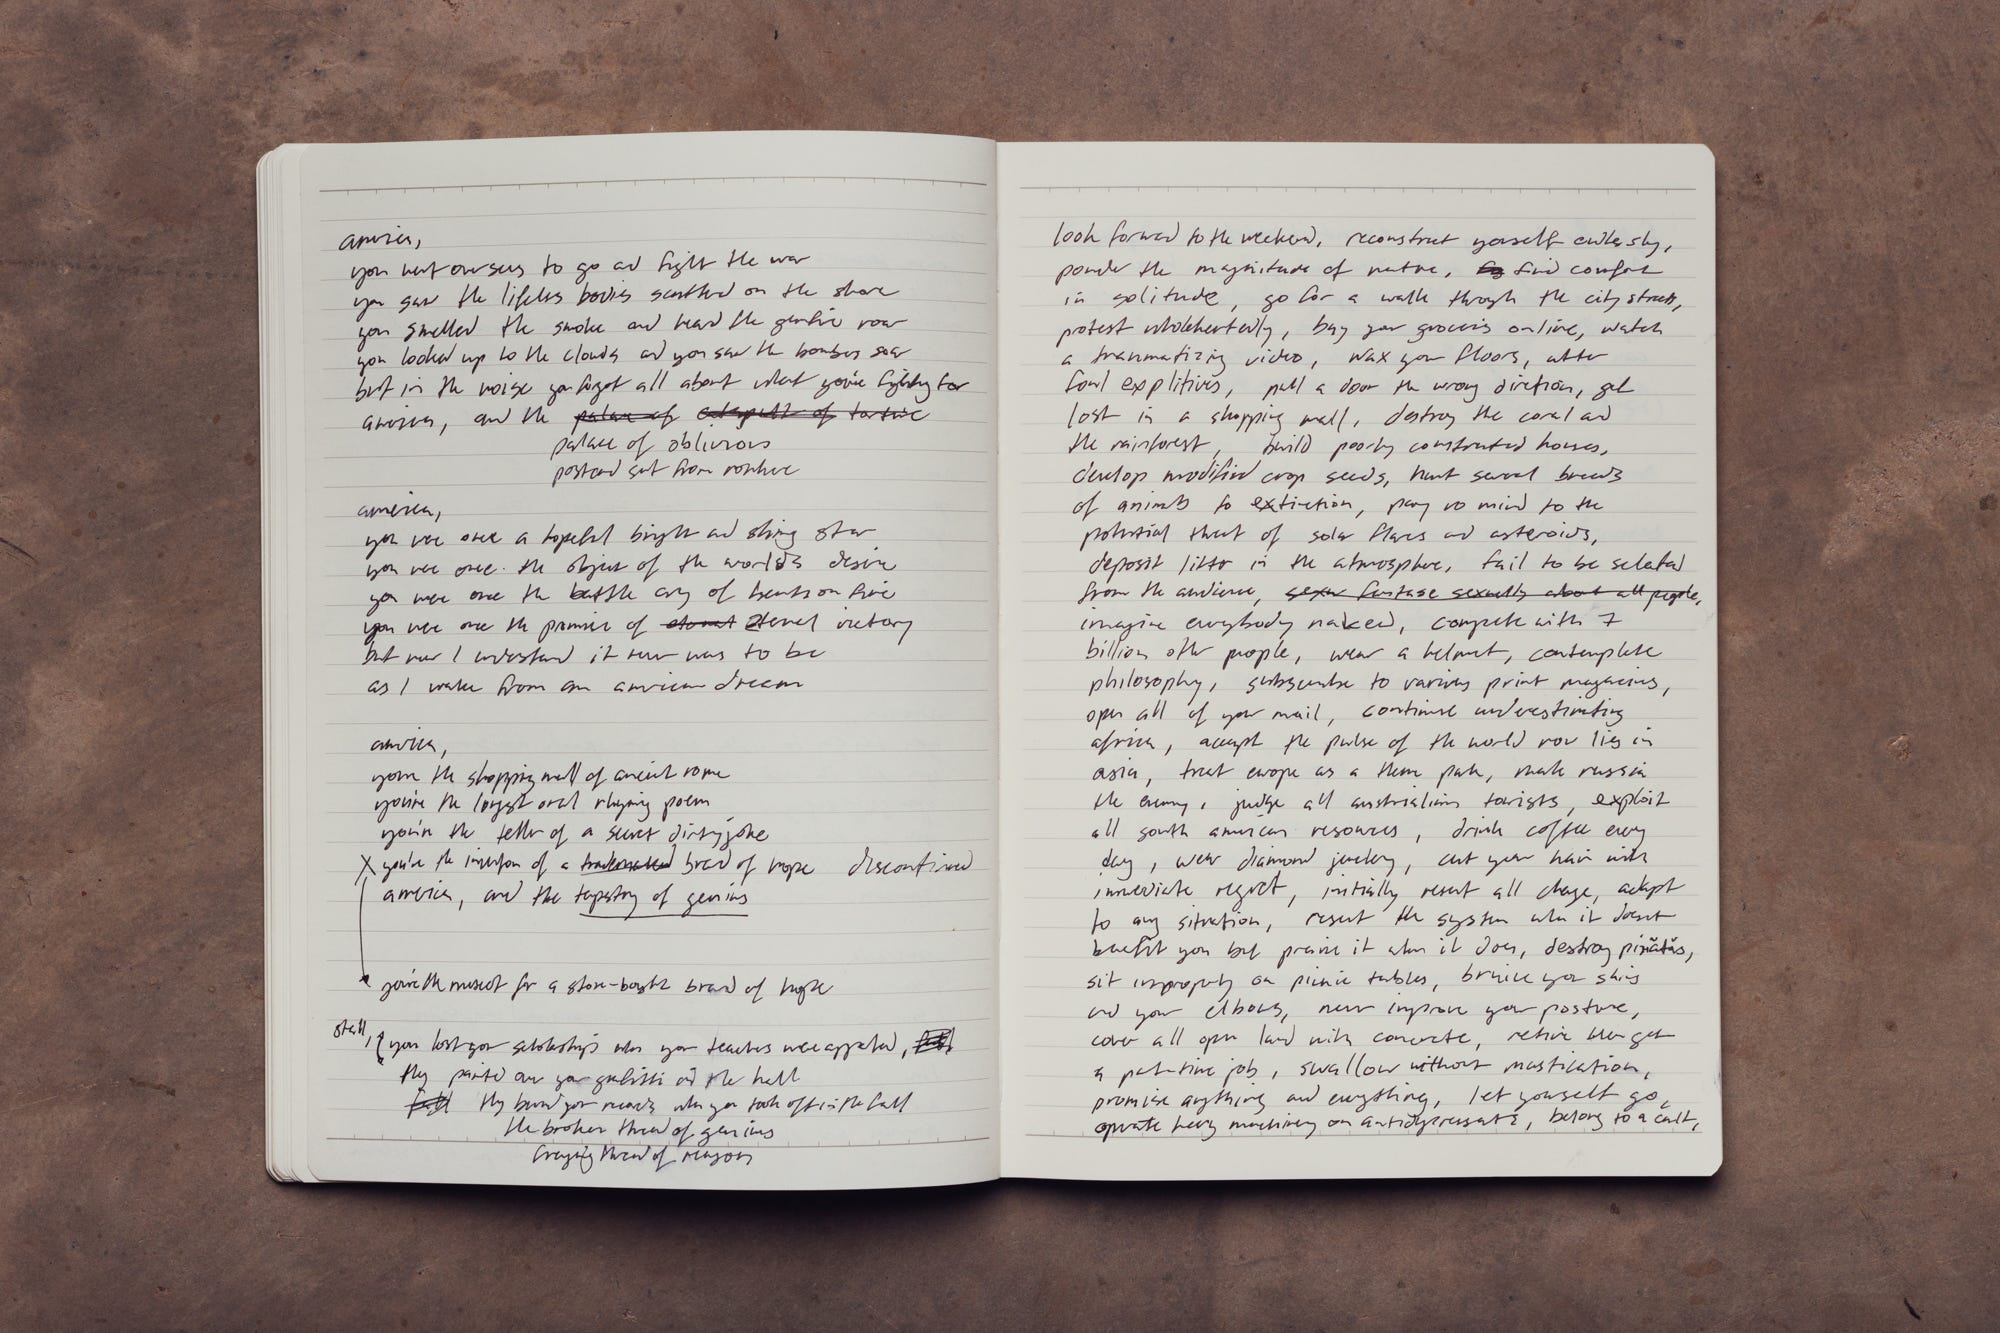 america,
you went overseas to go and fight the war
you saw the lifeless bodies scattered on the shore
you smelled the smoke and heard the gunfire roar
you looked up to the clouds and you saw the bombers soar
but in the noise you forgot all about what you're fighting for
america, and the palace of catapult of
palace of oblivious
postcard sent from nowhere
america,
you were once a hopeful bright and shining star
you were once the object of the world's desire
you were once the battle cry of hearts on fire
you were once the promise of eternal eternal victory
but now I understand it never was to be
as I wake from an american dream
america,
you're the shopping mall of ancient rome
you're the longest oral rhyming poem
you're the teller of a secret dirty joke
X you're the invention of a trademarked brand of hope discontinued
america, and the tapestry of genius
you're the mascot for a store-bought brand of hope
you lost your scholarships when your teachers were appalled,
they painted over your graffiti in the hall
they burned your records when you took off in the fall
the broken thread of genius
fraying thread of reason
look forward to the weekend, reconstruct yourself endlessly,
ponder the magnitude of nature, find comfort
in solitude, go for a walk through the city streets,
protest wholeheartedly, buy your groceries online, watch
a traumatizing video, wax your floors, utter
foul expletives, pull a door the wrong direction, get
lost in a shopping mall, destroy the coral and
the rainforest, build poorly constructed houses,
develop modified crop seeds, hunt several breeds
of animals to extinction, pay no mind to the
potential threat of solar flares and asteroids,
deposit litter in the atmosphere, fail to be selected
from the audience, sexually about all people,
imagine everybody naked, compete with 7
billion other people, wear a helmet, contemplate
philosophy, subscribe to various print magazines,
open all of your mail, continue underestimating
africa, accept the pulse of the world now lies in
asia, treat europe as a theme park, make russia
the enemy, judge all australian tourists, exploit
all south american resources, drink coffee every
day, wear diamond jewelry, cut your hair with
immediate regret, initially resent all change, adapt
to any situation, resent the system when it doesnt
benefit you but praise it when it does, destroy piñatas,
sit improperly on picnic tables, bruise your shins
and your elbows, never improve your posture,
cover all open land with concrete, retire
a part-time job, swallow without mastication,
promise anything and everything, let yourself go,
operate heavy machinery on antidepressants, belong to a cult,